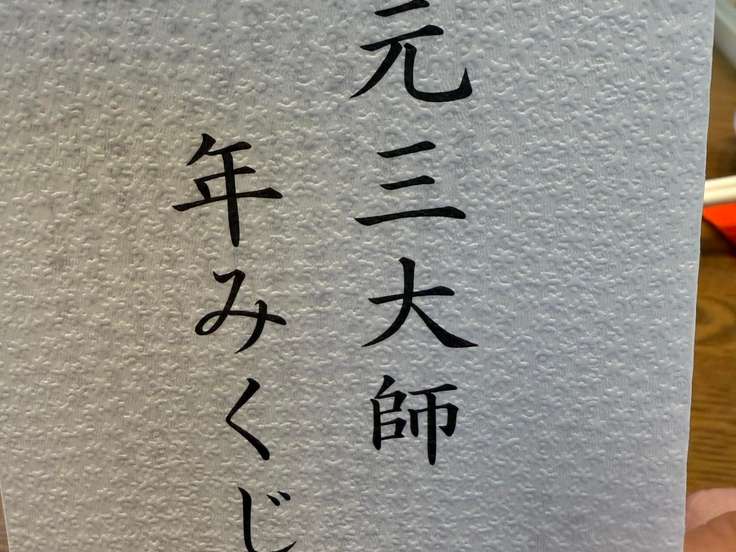 元三大師
年みくじ